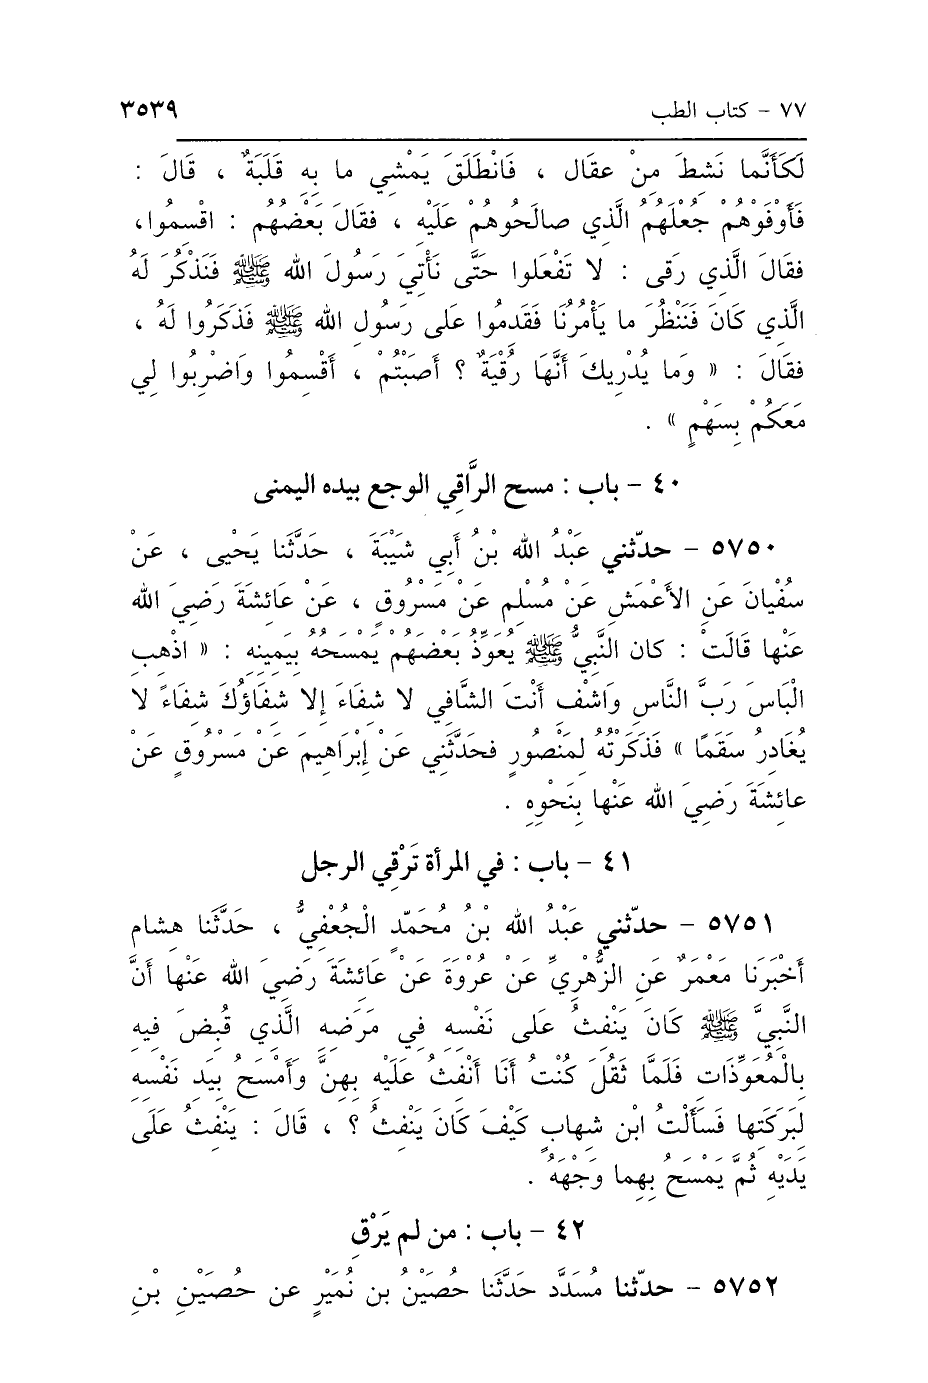 ٧٧ - كتاب الطب ٣٥٣٩
لَكَأَنَّما نَشِطَ مِنْ عِقال ، فَانْطَلَقَ يَمْشِي ما بِهِ قَلَبَةٌ ، قَالَ :
فَأَوْفَوْهُمْ جُعْلَهُمُ الَّذي صالَحُوهُمْ عَلَيْهِ ، فقَالَ بَعْضُهُم : اقْسِمُوا،
فقَالَ الَّذي رَقى : لا تَفْعَلوا حَتَّى نَأْتِيَ رَسُولَ الله ﷺ فَنَذْكُرَ لَهُ
الَّذي كَانَ فَنَنْظُرَ ما يَأْمُرُنَا فَقَدِموا عَلى رَسُولِ الله ﷺ فَذَكَرُوا لَهُ ،
فقَالَ : « وَما يُدْرِيكَ أَنَّهَا رُقْيَةٌ ؟ أَصَبْتُمْ ، أَقْسِموا وَاضْرِبُوا لِي
مَعَكُمْ بِسَهْمٍ » .
٤٠ - باب : مسح الرَّاقِي الوجع بيده اليمنى
٥٧٥٠ - حدّثني عَبْدُ الله بْنُ أَبي شَيْبَةَ ، حَدَّثَنا يَحْيى ، عَنْ
سُفْيانَ عَنِ الأَعْمَشِ عَنْ مُسْلِمٍ عَنْ مَسْرُوقٍ ، عَنْ عَائِشَةَ رَضِيَ الله
عَنْها قَالَتْ : كان النَّبيُّ ﷺ يُعَوِّذُ بَعْضَهُمْ يَمْسَحُهُ بِيَمِينِهِ : « اذْهِب
الْبَاسَ رَبَّ النَّاسِ وَاشْفِ أَنْتَ الشَّافِي لا شِفَاءَ إِلا شِفَاؤُكَ شِفَاءً لا
يُغَادِرُ سَقَمًا » فَذَكَرْتُهُ لِمَنْصُورٍ فحَدَّثَنِي عَنْ إِبْرَاهِيمَ عَنْ مَسْرُوقٍ عَنْ
عائِشَةَ رَضِيَ الله عَنْها بِنَحْوِهِ .
٤١ - باب : في المرأة تَرْقِي الرجل
٥٧٥١ - حدّثني عَبْدُ الله بْنُ مُحَمّدٍ الْجُعْفِيُّ ، حَدَّثَنا هِشام
أَخْبَرَنَا مَعْمَرٌ عَنِ الزُّهْرِيِّ عَنْ عُرْوَةَ عَنْ عَائِشَةَ رَضِيَ الله عَنْها أَنَّ
النَّبِيَّ ﷺ كَانَ يَنْفِثُ عَلى نَفْسِهِ فِي مَرَضِهِ الَّذي قُبِضَ فِيهِ
بِالْمُعَوِّذَاتِ فَلَمَّا ثَقُلَ كُنْتُ أَنَا أَنْفِثُ عَلَيْهِ بِهِنَّ وَأَمْسَحُ بِيَدِ نَفْسِهِ
لِبَرَكَتِها فَسَأَلْتُ ابْن شِهابٍ كَيْفَ كَانَ يَنْفِثُ ؟ ، قَالَ : يَنْفِثُ عَلَى
يَدَيْهِ ثُمَّ يَمْسَحُ بِهِما وَجْهَهُ .
٤٢ - باب : من لم يَرْقِ
٥٧٥٢ - حدّثنا مُسَدَّد حَدَّثَنا حُصَيْنُ بن نُمَيْرٍ عن حُصَيْنِ بْنِ